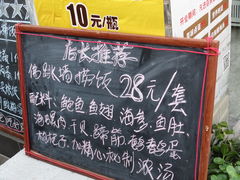 10元/瓶
店长推荐
佛跳墙捞饭 28元/套
配料、鲍鱼 鱼翅 海参、鱼肚
海螺肉 干贝 蹄筋、鹌鹑蛋
秘制浓汤